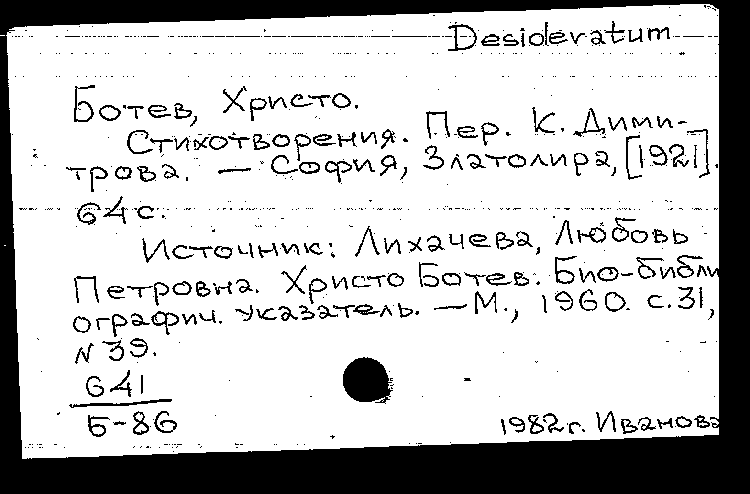 Desideratum
Ботев, Христо.
Стихотворения. Пер. К. Дими-
трова. — София, Златолира, [1921].
64 с.
Источник: Лихачева, Любовь
Петровна. Христо Ботев. Био-библи
ографич. указатель. — М., 1960. с. 31,
N 39.
641
Б-86
1982 г. Иванова